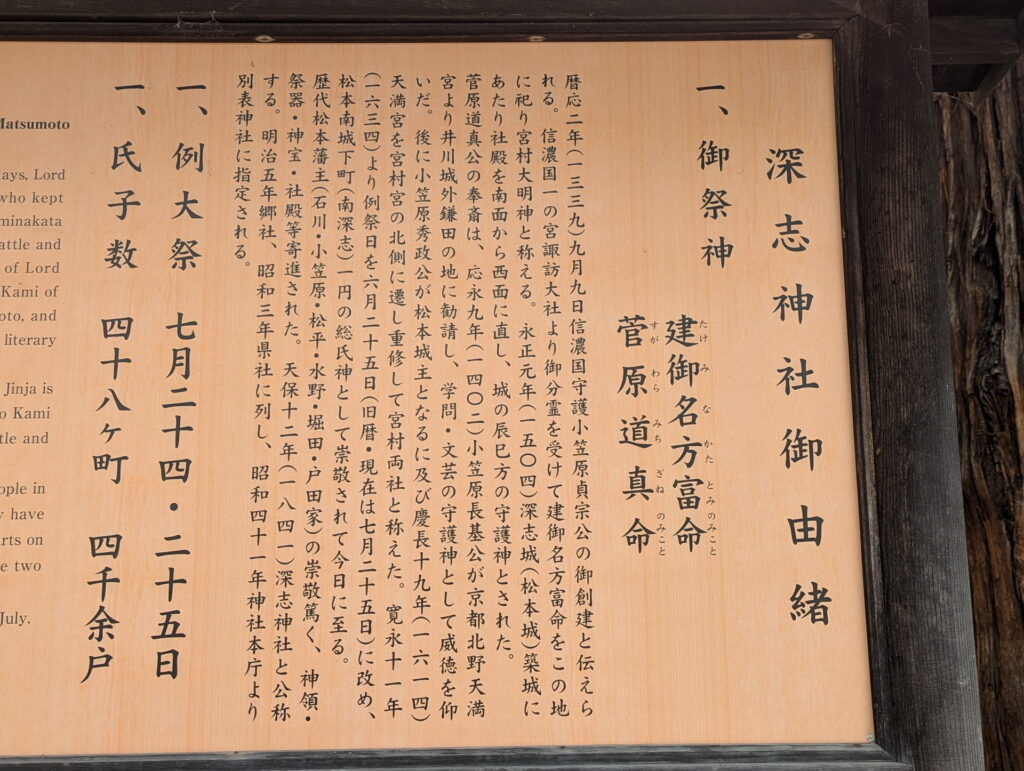 深志神社御由緒
一、御祭神
建御名方富命
たけみなかたとみのみこと
菅原道真命
すがわらみちざねのみこと
暦応二年(一三三九)九月九日信濃国守護小笠原貞宗公の御創建と伝えら
れる。信濃国一の宮諏訪大社より御分霊を受けて建御名方富命をこの地
に祀り宮村大明神と称える。永正元年(一五〇四)深志城(松本城)築城に
あたり社殿を南面から西面に直し、城の辰巳方の守護神とされた。
菅原道真公の奉斎は、応永九年(一四〇二)小笠原長基公が京都北野天満
宮より井川城外鎌田の地に勧請し、学問・文芸の守護神として威徳を仰
いだ。後に小笠原秀政公が松本城主となるに及び慶長十九年(一六一四)
天満宮を宮村宮の北側に遷し重修して宮村両社と称えた。寛永十一年
(一六三四)より例祭日を六月二十五日(旧暦・現在は七月二十五日)に改め、
松本南城下町(南深志)一円の総氏神として崇敬されて今日に至る。
歴代松本藩主(石川・小笠原・松平・水野・堀田・戸田家)の崇敬篤く、神領・
祭器・神宝・社殿等寄進された。天保十二年(一八四一)深志神社と公称
する。明治五年郷社、昭和三年県社に列し、昭和四十一年神社本庁より
別表神社に指定される。
一、例大祭 七月二十四・二十五日
一、氏子数 四十八ヶ町 四千余戸
Matsumoto
days, Lord
who kept
minakata
attle and
of Lord
Kami of
oto, and
literary
Jinja is
o Kami
tle and
ople in
y have
arts on
e two
July.